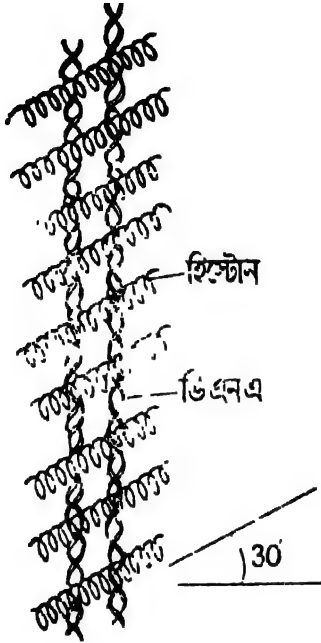 হিস্টোন
ডি এন এ
30